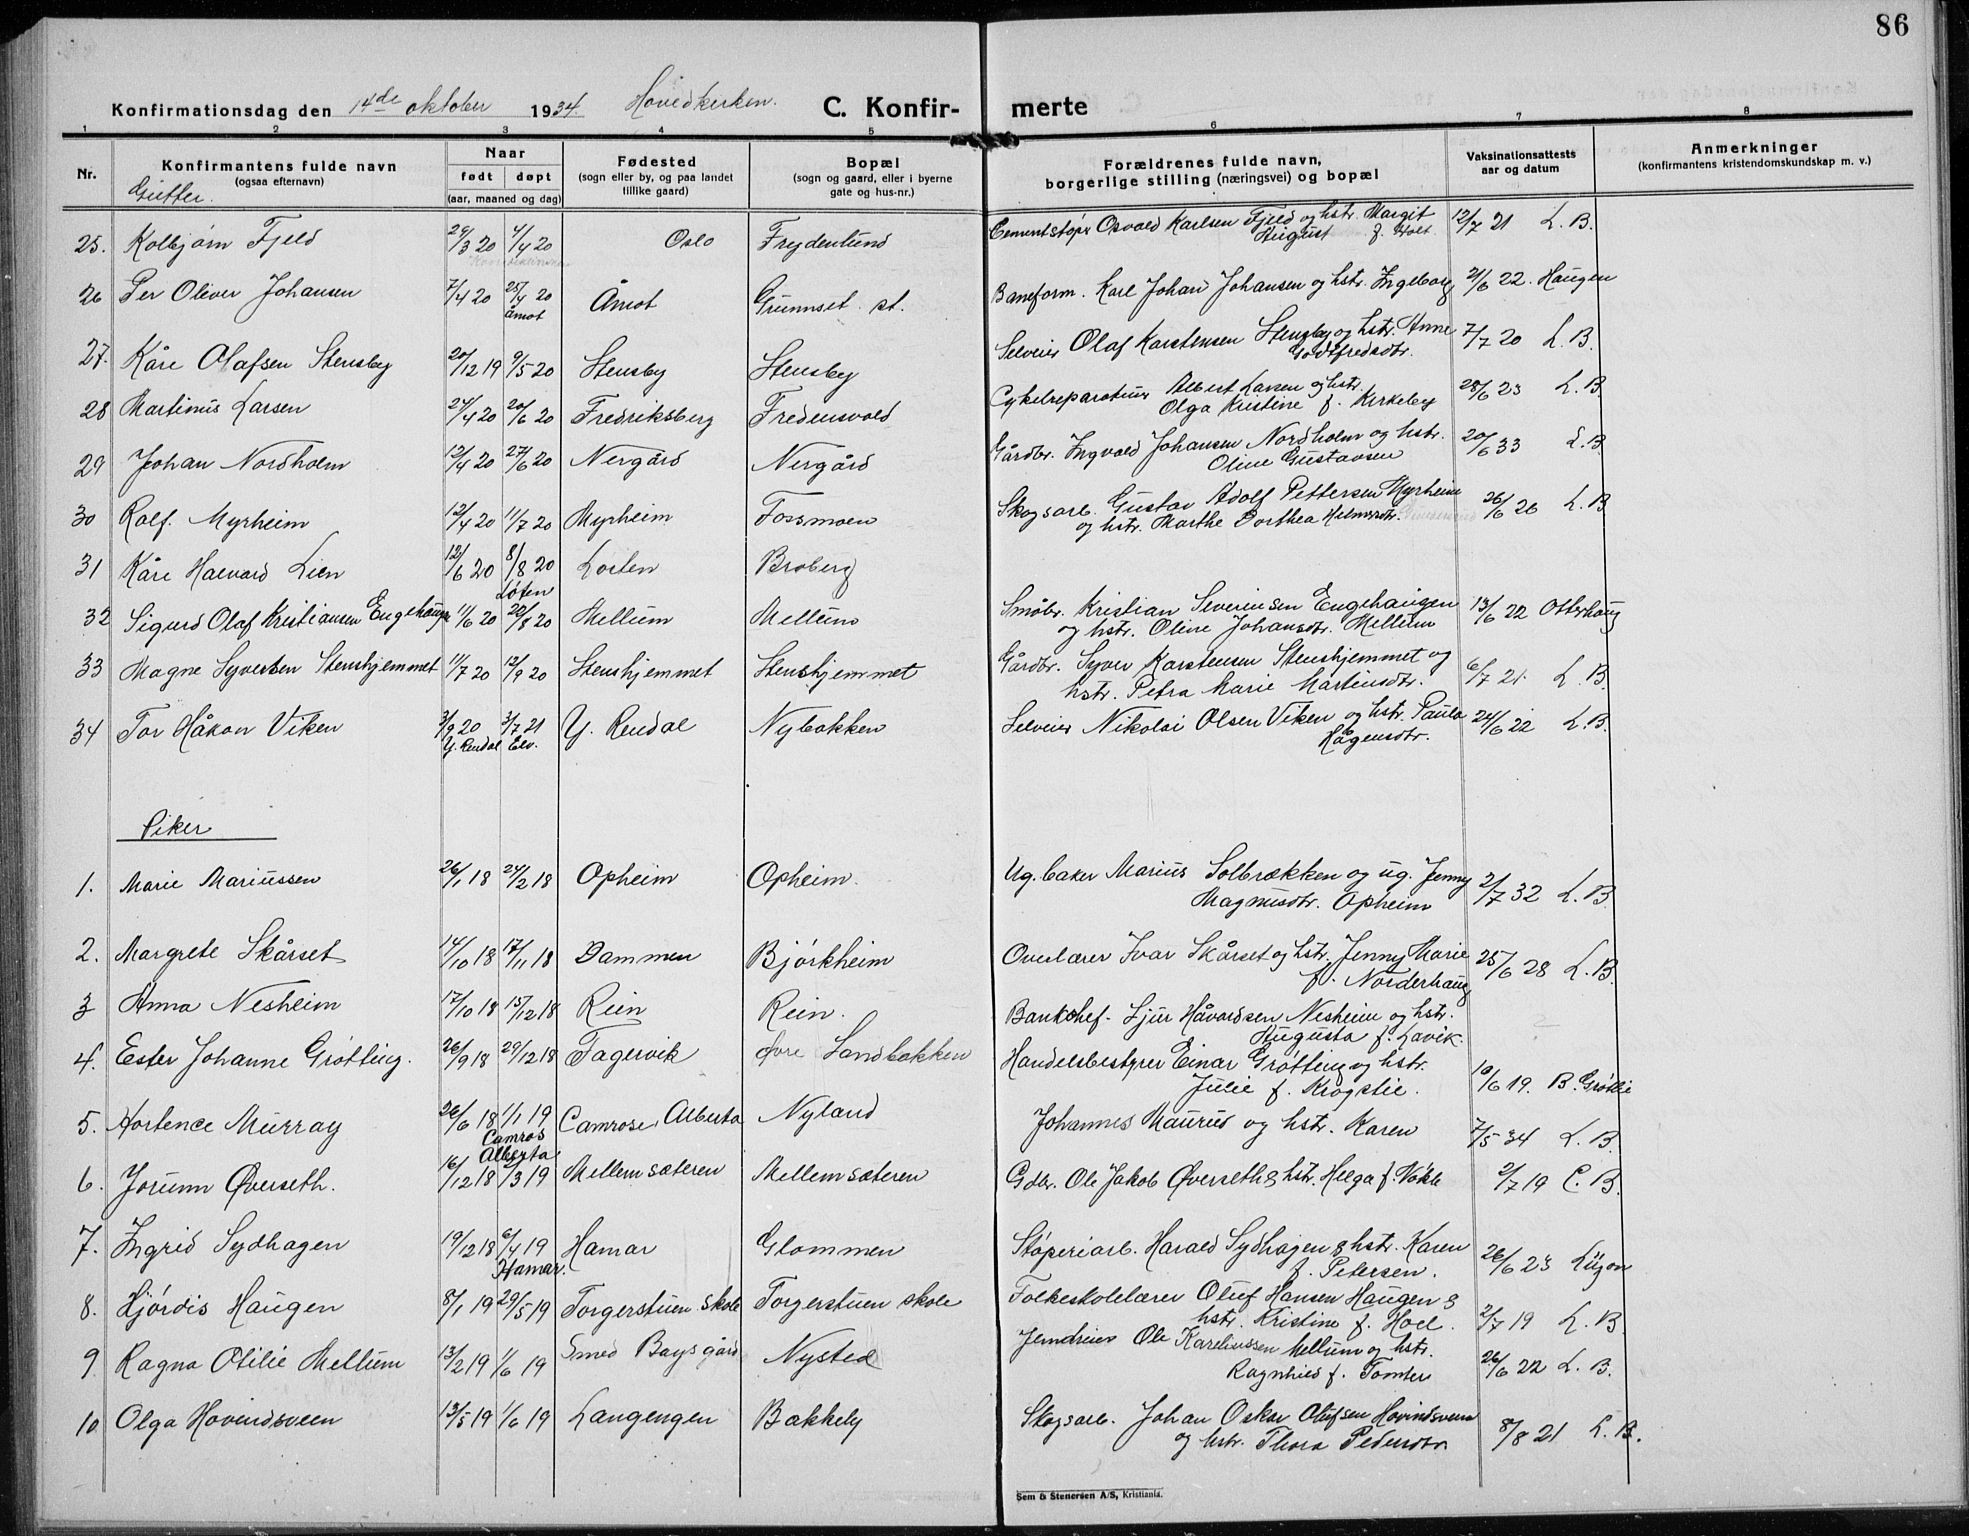 86
Konfirmationsdag den 14de oktober 1934. Hovedkirken. C. Konfir- merte
1 2 3 4 5 6 7 8
Nr. Konfirmantens fulde navn (ogsaa efternavn) Naar født døpt (aar, maaned og dag) Fødested (sogn eller by, og paa landet tillike gaard) Bopæl (sogn og gaard, eller i byerne gate og hus-nr.) Forældrenes fulde navn, borgerlige stilling (næringsvei) og bopæl Vaksinationsattests aar og datum Anmerkninger (konfirmantens kristendomskundskap m. v.)
Gutter.
25. Kolbjørn Fjeld 29/3 20 4/4 20 Oslo Frydenlund Cementstøper Osvald Karlsen Fjeld og hstr. Margit August f. Holt 12/7 21 L. B.
26 Per Oliver Johansen 7/4 20 25/4 20 Åmot Åmot Grunnset st. Baneform. Karl Johan Johansen og hstr. Ingeborg 21/6 22. Haugen
27. Kåre Olafsen Stensby 20/12 19 9/5 20 Stensby Stensby Selveier Olaf Karstensen Stensby og hstr. Anne Godtfredsdtr. 7/7 20 L. B.
28 Martinus Larsen 24/4 20 20/6 20 Fredriksberg Fredensvold Cykelreparatur Albert Larsen og hstr. Olga Kristine f. Kirkeby 28/6 23 L. B.
29 Johan Nordholm 12/4 20 27/6 20 Nergård Nergård Gårdbr. Ingvald Johansen Nordholm og hstr. Oline Gustavsen 20/6 33 L. B.
30 Rolf. Myrheim 12/4 20 11/7 20 Myrheim Fossmoen Skogsarb. Gustav Adolf Pettersen Myrheim og hstr. Marthe Dorthea Helmersdtr. 26/6 26 L. B.
31 Kåre Halvard Lien 12/6 20 8/8 20 Løten Lørten Broberg
32 Sigurd Olaf Kristiansen Engehaugen 11/6 20 20/8 20 Mellum Mellum Småbr. Kristian Severinsen Engehaugen og hstr. Oline Johansdtr. Mellum 13/6 22 Otterhaug
33 Magne Syversen Stenshjemmet 11/7 20 12/9 20 Stenshjemmet Stenshjemmet Gårdbr. Syver Karstensen Stenshjemmet og hstr. Petra Marie Martinsdtr. 6/7 21. L. B.
34 Tor Håkon Viken 3/9 20 Y. Rendal 3/7 21 Elv. Y. Rendal Nybakken Selveier Nikolai Olsen Viken og hstr. Paula Hågensdtr. 24/6 22 L. B.
Piker
1. Marie Mariussen 26/1 18 24/2 18 Opheim Opheim. Ug. baker Marius Solbrækken og ug. Jenny Magnusdtr. Opheim 2/7 32 L. B.
2. Margrete Skårset 14/10 18 17/11 18 Dammen Bjørkheim Overlærer Ivar Skårset og hstr. Jenny Marie f. Norderhaug 25/6 28 L. B.
3 Anna Nesheim 17/10 18 15/12 18 Rein Rein. Bankchef. Sjur Håvardsen Nesheim og hstr. Augusta f. Lavik.
4. Ester Johanne Grøtting. 26/9 18 29/12 18 Fagervik Øvre Sandbakken Handelsbestyrer Einar Grøtting og hstr. Julie f. Krogstie. 10/6 19. B. Grøtlie
5. Hortence Murray 26/6 18 1/1 19 Camros Alberta Camrose, Alberta Nyland Johannes Maurud og hstr. Karen 7/5 34 L. B.
6. Jorunn Øverseth. 16/12 18 2/3 19 Mellemsæteren Mellemsæteren Gdbr. Ole Jakob Øverseth & hstr. Helga f. Nökle 2/7 19 C. B.
7. Ingrid Sydhagen 19/12 18 6/4 19 Hamar. Hamar Glommen Støperiarb. Harald Sydhagen & hstr. Karen f. Petersen. 26/6 23 Lüzon
8. Hjørdis Haugen 8/1 19 29/5 19 Torgerstuen skole Torgerstuen skole Folkeskolelærer Oluf Hansen Haugen & hstr. Kristine f. Hoel. 2/7 19 L. B.
9 Ragna Otilie Mellum 13/2 19 1/6 19 Smed Baysgård Nysted Jerndreier Ole Karelinssen Mellum og hstr. Ragnhild f. Tomter 26/6 22 L. B.
10 Olga Hovindsveen 13/5 19 1/6 19 Langengen Bakkely Skogsarb. Johan Oskar Olufsen Hovindsveen og hstr. Thora Pedersdtr 8/8 21 L. B.
Sem & Stenersen A/S, Kristiania.